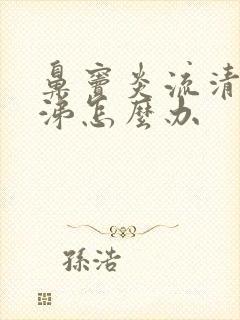 鼻窦炎流清
涕怎麼办
孫浩